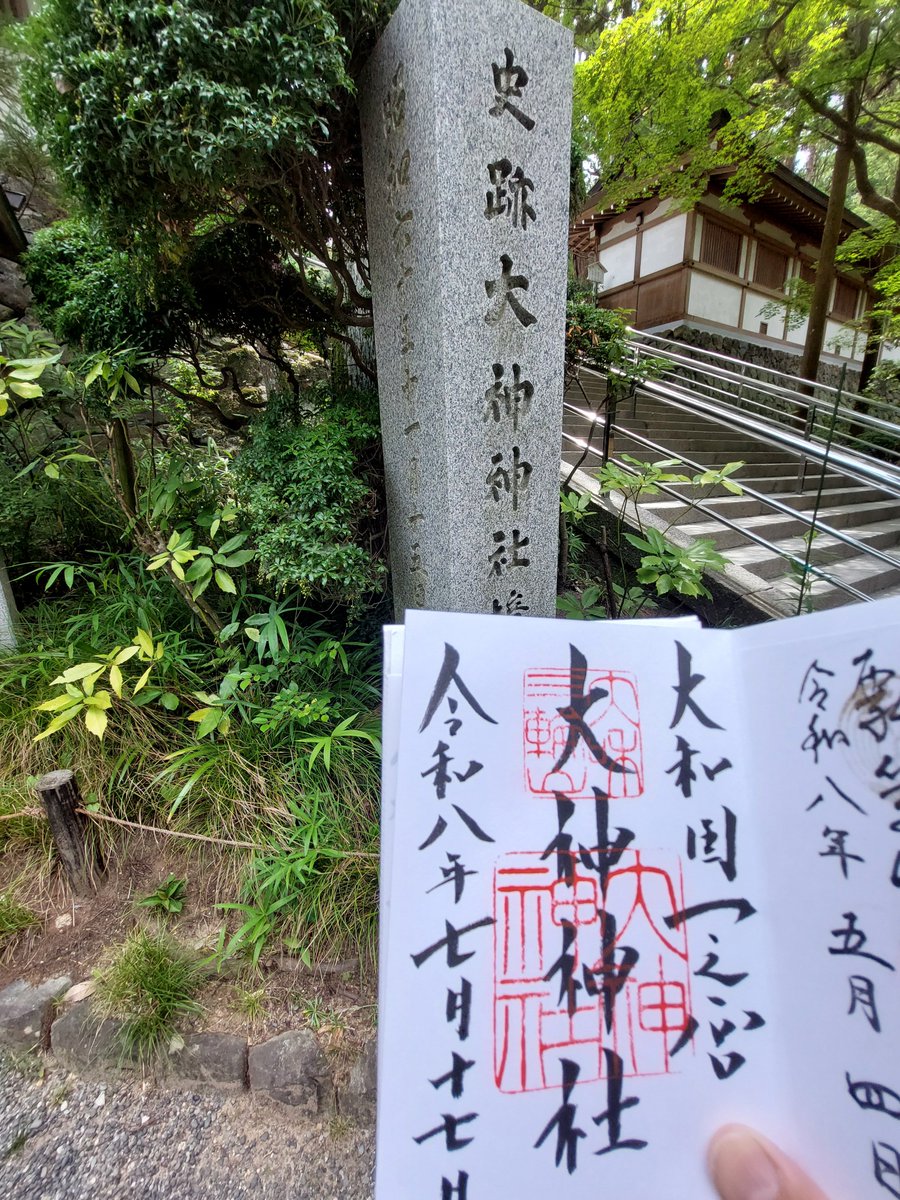 史跡大神神社境
大和国一之宮
大神神社
令和八年七月十七日
三輪山
大神神社
令和八年五月四日